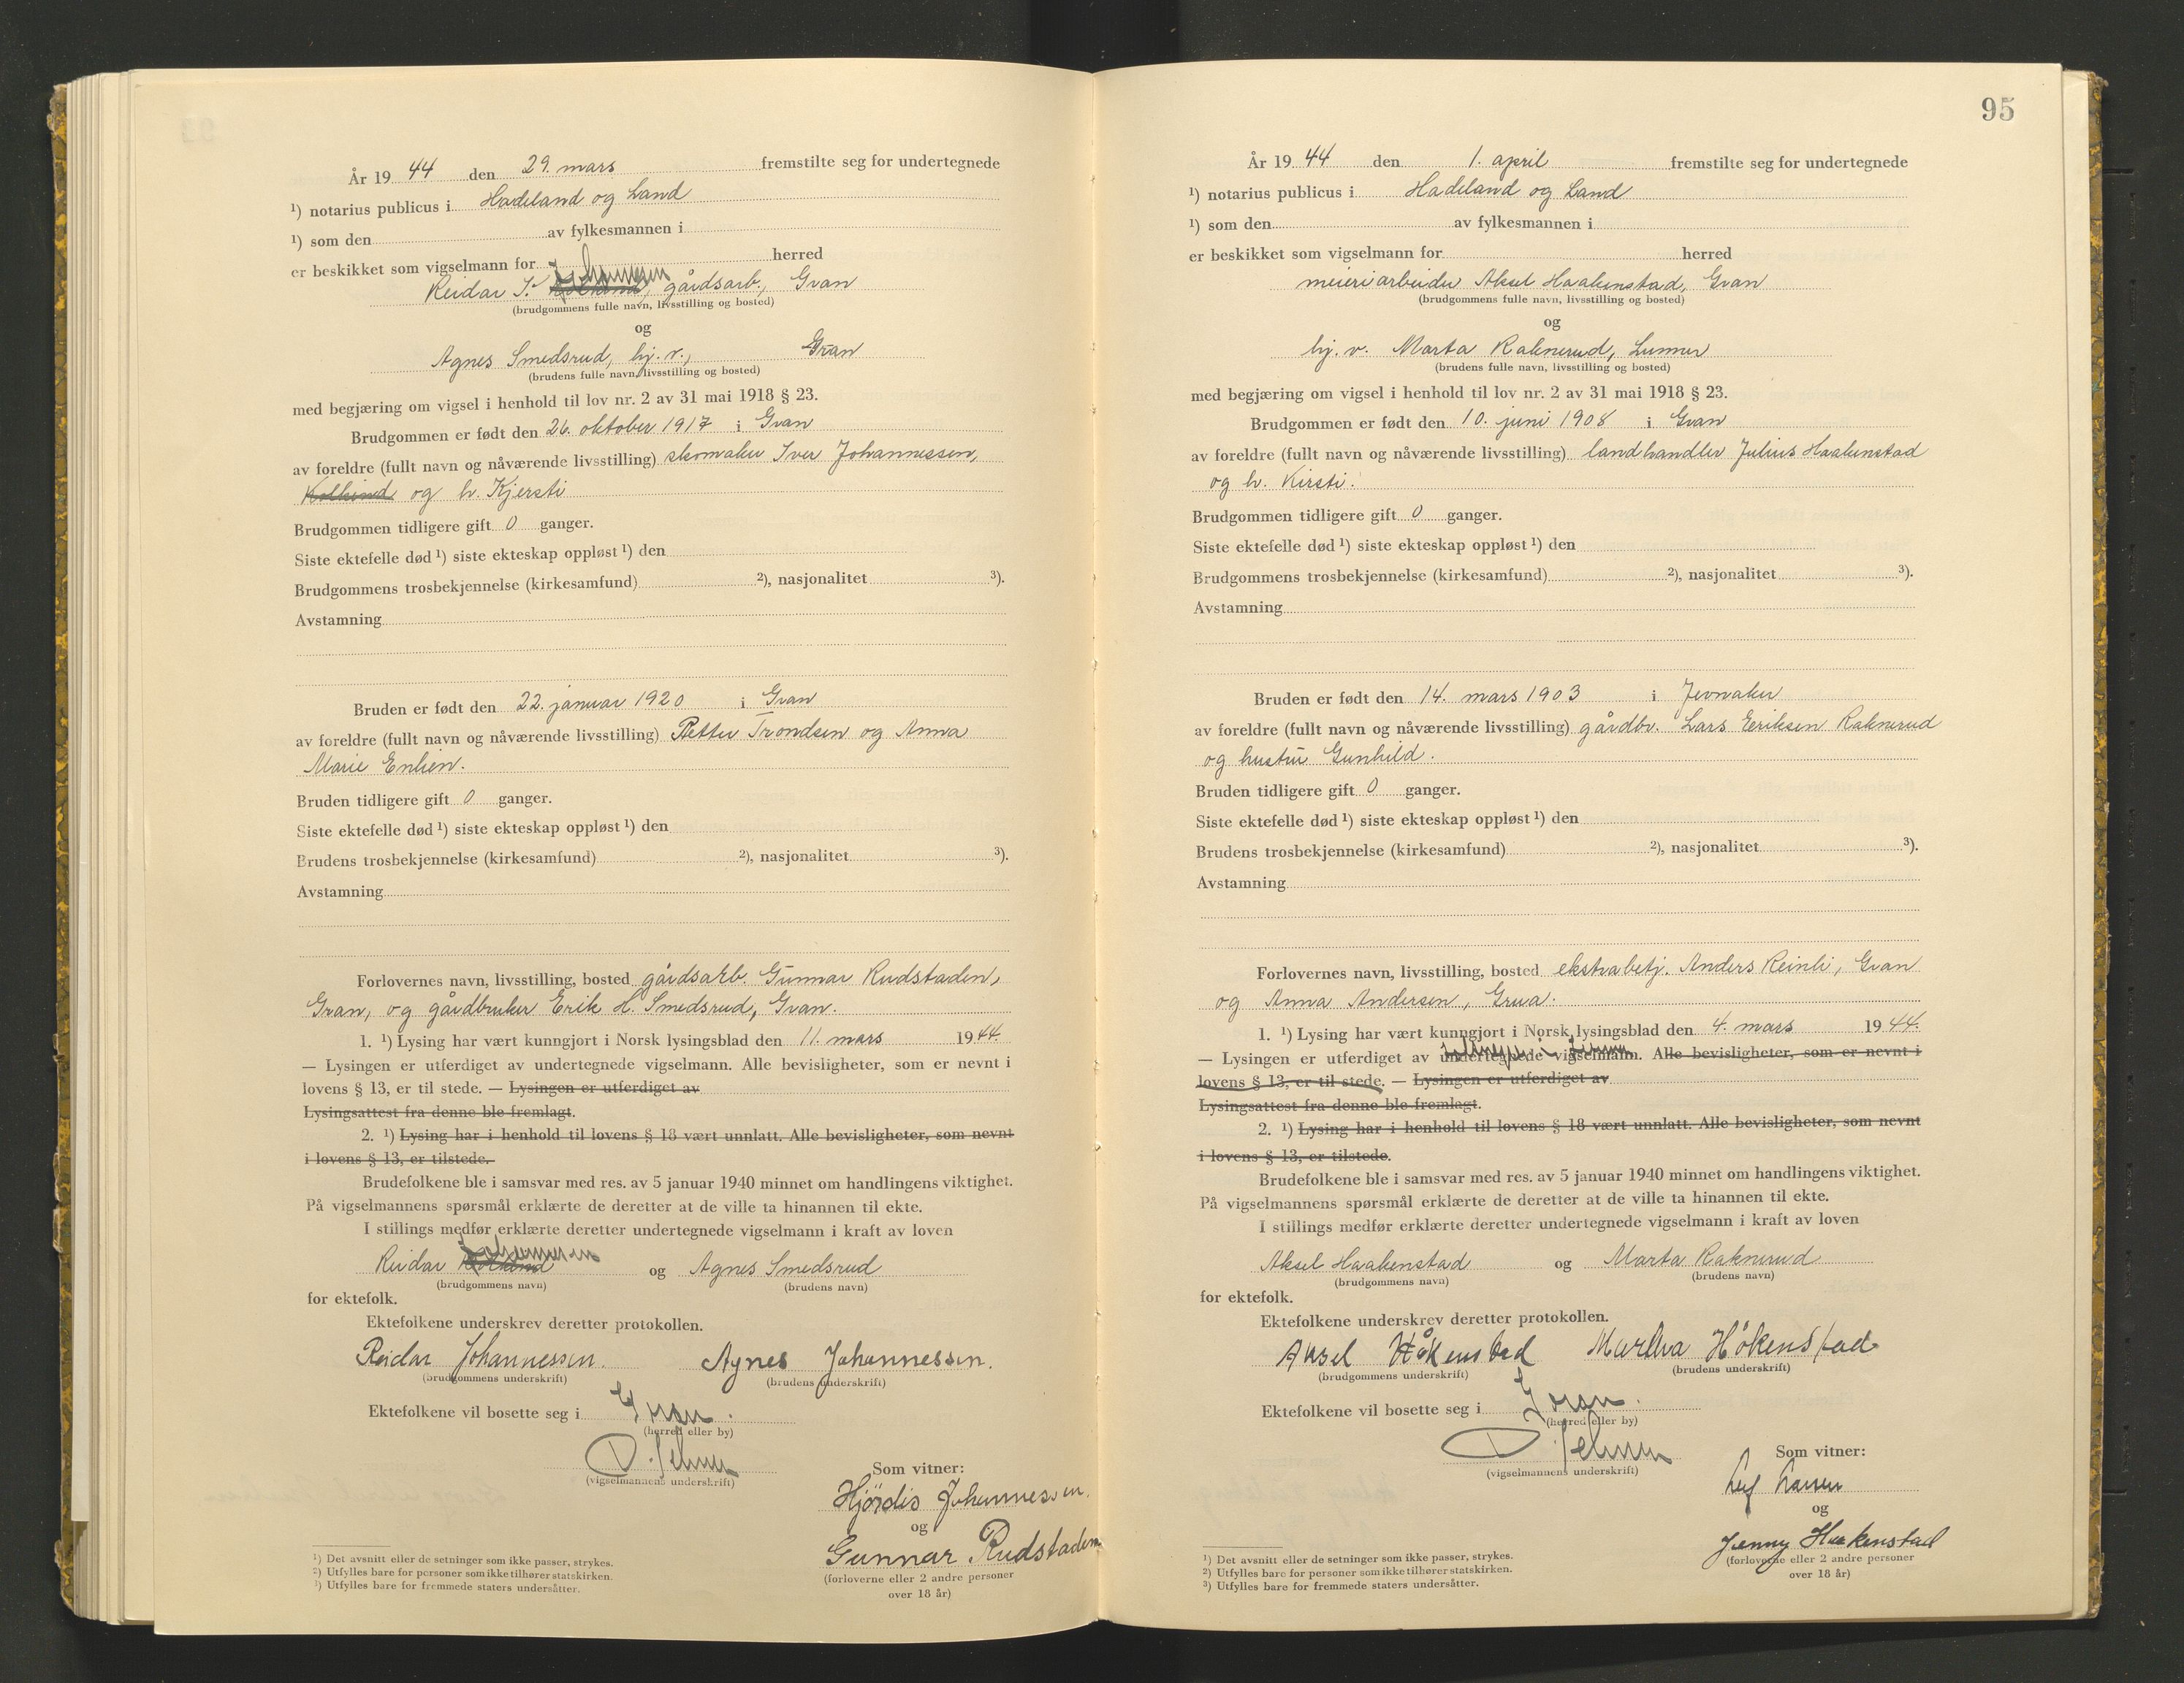 År 19 44 den 29. mars fremstilte seg for undertegnede
1) notarius publicus i Hadeland og Land
1) som den av fylkesmannen i
er beskikket som vigselmann for herred
Johannessen
Reidar I. gårdsarb., Gran
(brudgommens fulle navn, livsstilling og bosted)
og
Agnes Smedsrud, hj. v., Gran
(brudens fulle navn, livsstilling og bosted)
med begjæring om vigsel i henhold til lov nr. 2 av 31 mai 1918 § 23.
Brudgommen er født den 26. oktober 1917 i Gran
av foreldre (fullt navn og nåværende livsstilling) skomaker Iver Johannessen,
og h. Kjersti
Brudgommen tidligere gift 0 ganger.
Siste ektefelle død 1) siste ekteskap oppløst 1) den
Brudgommens trosbekjennelse (kirkesamfund) 2), nasjonalitet 3).
Avstamning
Bruden er født den 22. januar 1920 i Gran
av foreldre (fullt navn og nåværende livsstilling) Petter Trondsen og Anna
Marie Enlien.
Bruden tidligere gift 0 ganger.
Siste ektefelle død 1) siste ekteskap oppløst 1) den
Brudens trosbekjennelse (kirkesamfund) 2), nasjonalitet 3).
Avstamning
Forlovernes navn, livsstilling, bosted gårdsarb. Gunnar Rudstaden,
Gran, og gårdbruker Erik H. Smedsrud, Gran.
1. 1) Lysing har vært kunngjort i Norsk lysingsblad den 11. mars 1944.
— Lysingen er utferdiget av undertegnede vigselmann. Alle bevisligheter, som er nevnt i
lovens § 13, er til stede. — Lysingen er utferdiget av
Lysingsattest fra denne ble fremlagt.
2. 1) Lysing har i henhold til lovens § 18 vært unnlatt. Alle bevisligheter, som nevnt
i lovens § 13, er tilstede.
Brudefolkene ble i samsvar med res. av 5 januar 1940 minnet om handlingens viktighet.
På vigselmannens spørsmål erklærte de deretter at de ville ta hinannen til ekte.
I stillings medfør erklærte deretter undertegnede vigselmann i kraft av loven
Johannessen
Reidar og Agnes Smedsrud
(brudgommens navn) (brudens navn)
for ektefolk.
Ektefolkene underskrev deretter protokollen.
Reidar Johannessen. Agnes Johannessen.
(brudgommens underskrift) (brudens underskrift)
Ektefolkene vil bosette seg i Gran.
(herred eller by)
(vigselmannens underskrift)
Som vitner:
Hjördis Johannessen.
og
Gunnar Rudstaden
(forloverne eller 2 andre personer
over 18 år)
1) Det avsnitt eller de setninger som ikke passer, strykes.
2) Utfylles bare for personer som ikke tilhører statskirken.
3) Utfylles bare for fremmede staters undersåtter.
95
År 19 44 den 1. april fremstilte seg for undertegnede
1) notarius publicus i Hadeland og Land
1) som den av fylkesmannen i
er beskikket som vigselmann for herred
meieriarbeider Aksel Haakenstad, Gran
(brudgommens fulle navn, livsstilling og bosted)
og
hj. v. Marta Raknerud, Lunner
(brudens fulle navn, livsstilling og bosted)
med begjæring om vigsel i henhold til lov nr. 2 av 31 mai 1918 § 23.
Brudgommen er født den 10. juni 1908 i Gran
av foreldre (fullt navn og nåværende livsstilling) landhandler Julius Haakenstad
og h. Kirsti.
Brudgommen tidligere gift 0 ganger.
Siste ektefelle død 1) siste ekteskap oppløst 1) den
Brudgommens trosbekjennelse (kirkesamfund) 2), nasjonalitet 3).
Avstamning
Bruden er født den 14. mars 1903 i Jevnaker
av foreldre (fullt navn og nåværende livsstilling) gårdbr. Lars Eriksen Raknerud
og hustru Gunhild.
Bruden tidligere gift 0 ganger.
Siste ektefelle død 1) siste ekteskap oppløst 1) den
Brudens trosbekjennelse (kirkesamfund) 2), nasjonalitet 3).
Avstamning
Forlovernes navn, livsstilling, bosted ekstrabetj. Anders Reinli, Gran
og Anna Andersen, Grua.
1. 1) Lysing har vært kunngjort i Norsk lysingsblad den 4. mars 1944.
— Lysingen er utferdiget av undertegnede vigselmann. Alle bevisligheter, som er nevnt i
lovens § 13, er til stede. — Lysingen er utferdiget av
Lysingsattest fra denne ble fremlagt.
2. 1) Lysing har i henhold til lovens § 18 vært unnlatt. Alle bevisligheter, som nevnt
i lovens § 13, er tilstede.
Brudefolkene ble i samsvar med res. av 5 januar 1940 minnet om handlingens viktighet.
På vigselmannens spørsmål erklærte de deretter at de ville ta hinannen til ekte.
I stillings medfør erklærte deretter undertegnede vigselmann i kraft av loven
Aksel Haakenstad og Marta Raknerud
(brudgommens navn) (brudens navn)
for ektefolk.
Ektefolkene underskrev deretter protokollen.
Aksel Håkenstad Martha Håkenstad
(brudgommens underskrift) (brudens underskrift)
Ektefolkene vil bosette seg i Gran.
(herred eller by)
(vigselmannens underskrift)
Som vitner:
og
Jenny Haakenstad
(forloverne eller 2 andre personer
over 18 år)
1) Det avsnitt eller de setninger som ikke passer, strykes.
2) Utfylles bare for personer som ikke tilhører statskirken.
3) Utfylles bare for fremmede staters undersåtter.